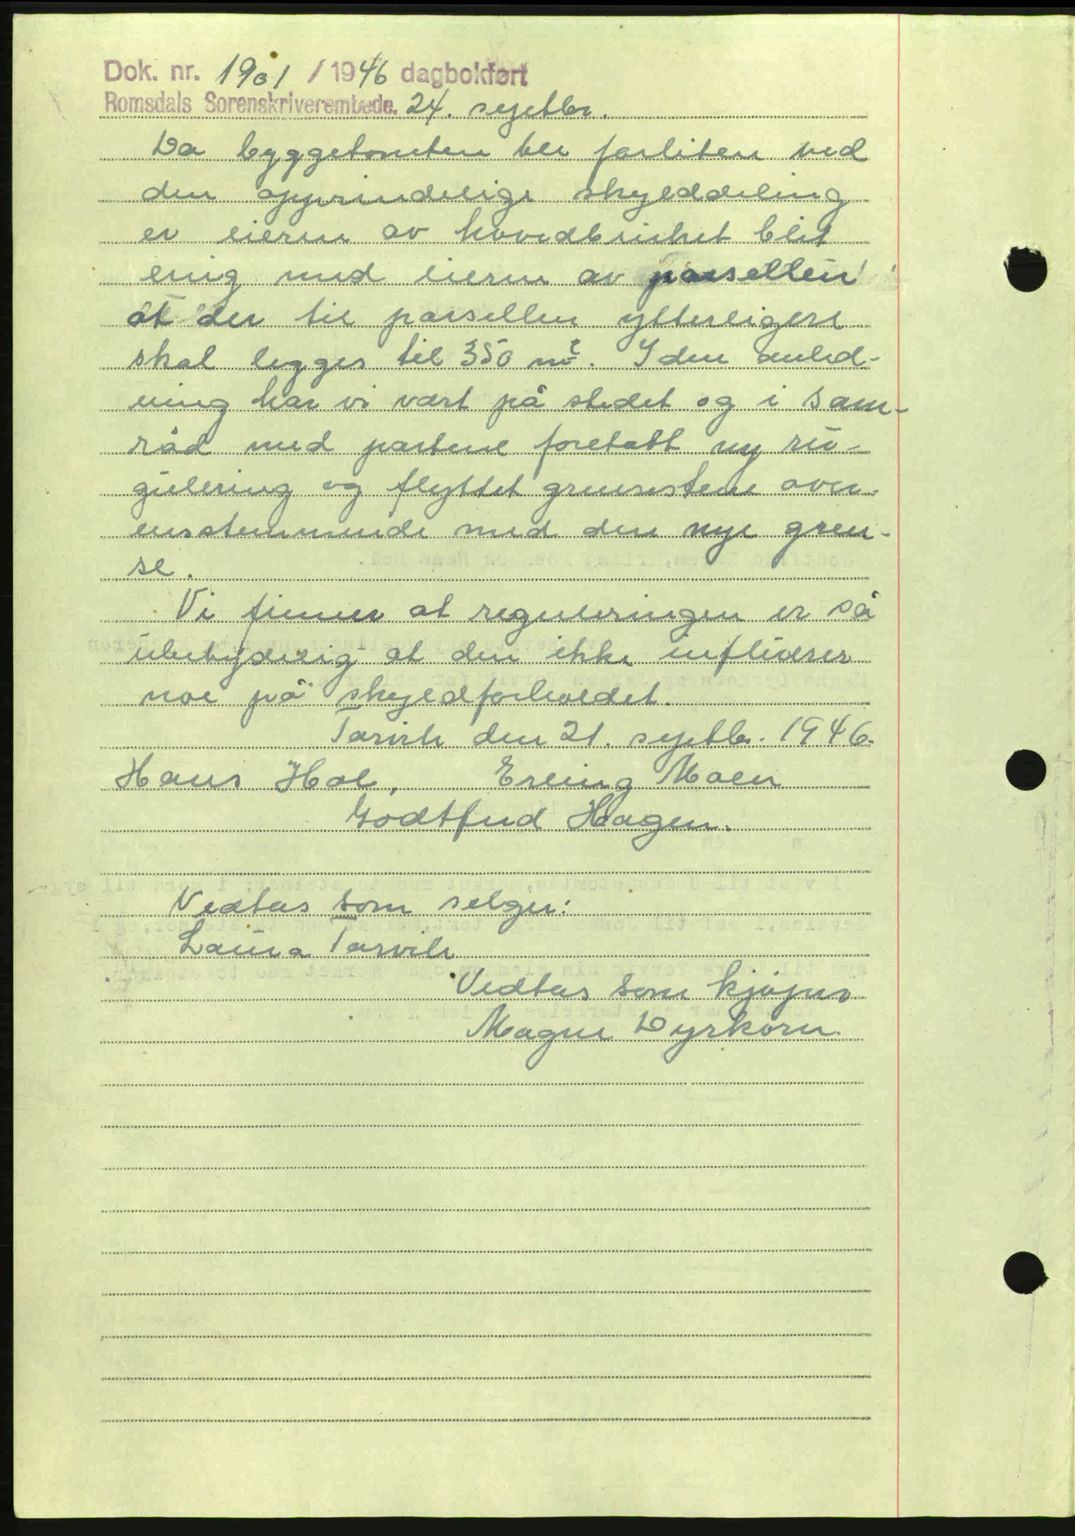 Dok. nr. 1901 / 1946 dagbokført
Romsdals Sorenskriverembede. 24. septbr.
Da byggetomten ble forliten ved
den opprindelige skylddeling
er eieren av hovedbruket blit
enig med eieren av parsellen
at der til parsellen ytterligere
skal legges til 350 m². I den anled-
ning har vi vært på stedet og i sam-
råd med partene foretatt ny re-
gulering og flyttet grensestene over-
ensstemmende med den nye gren-
se.
Vi finner at reguleringen er så
ubetydelig at den ikke influerer
noe på skyldforholdet.
Tarvik den 21. septbr. 1946.
Hans Hol, Erling Moen
Godtfred Hagen.
Vedtas som selger:
Laura Tarvik
Vedtas som kjøper
Magne Dyrkorn.